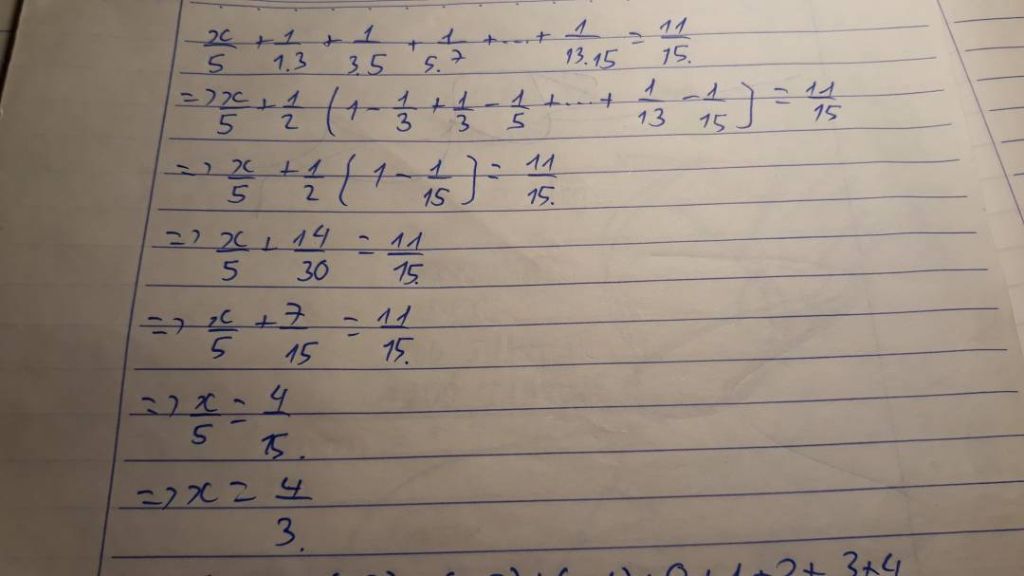 x/5 + 1/1.3 + 1/3.5 + 1/5.7 + ... + 1/13.15 = 11/15.
=> x/5 + 1/2 (1 - 1/3 + 1/3 - 1/5 + ... + 1/13 - 1/15) = 11/15
=> x/5 + 1/2 (1 - 1/15) = 11/15.
=> x/5 + 14/30 = 11/15.
=> x/5 + 7/15 = 11/15.
=> x/5 = 4/15.
=> x = 4/3.